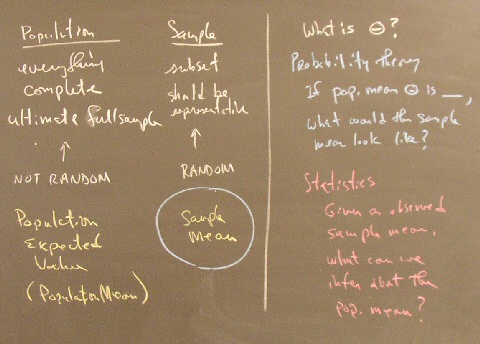 Population
everything
complete
ultimate full sample
NOT RANDOM
Population
Expected
Value
(Population Mean)
Sample
subset
should be
representative
RANDOM
Sample
Mean
What is Θ?
Probability theory
If pop. mean Θ is __,
what would the sample
mean look like?
Statistics
Given a observed
sample mean,
what can we
infer about the
pop. mean?